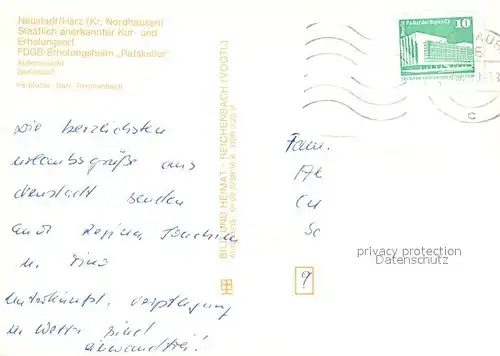 Neustadt/Harz (Kr. Nordhausen)
Staatlich anerkannter Kur- und
Erholungsort
FDGB-Erholungsheim „Ratskeller"
Außenansicht
Speisesaal
Farbfotos: Barz, Reichenbach
BILD UND HEIMAT REICHENBACH (VOGTL)
Palast der Republik
10
Die herzlichsten
Urlaubsgrüße aus
Neustadt senden
Euch Regina, Joachim
u. Tino
Unterkunft, Verpflegung
u. Wetter sind
einwandfrei!
Fam.
privacy protection
Datenschutz
9
c